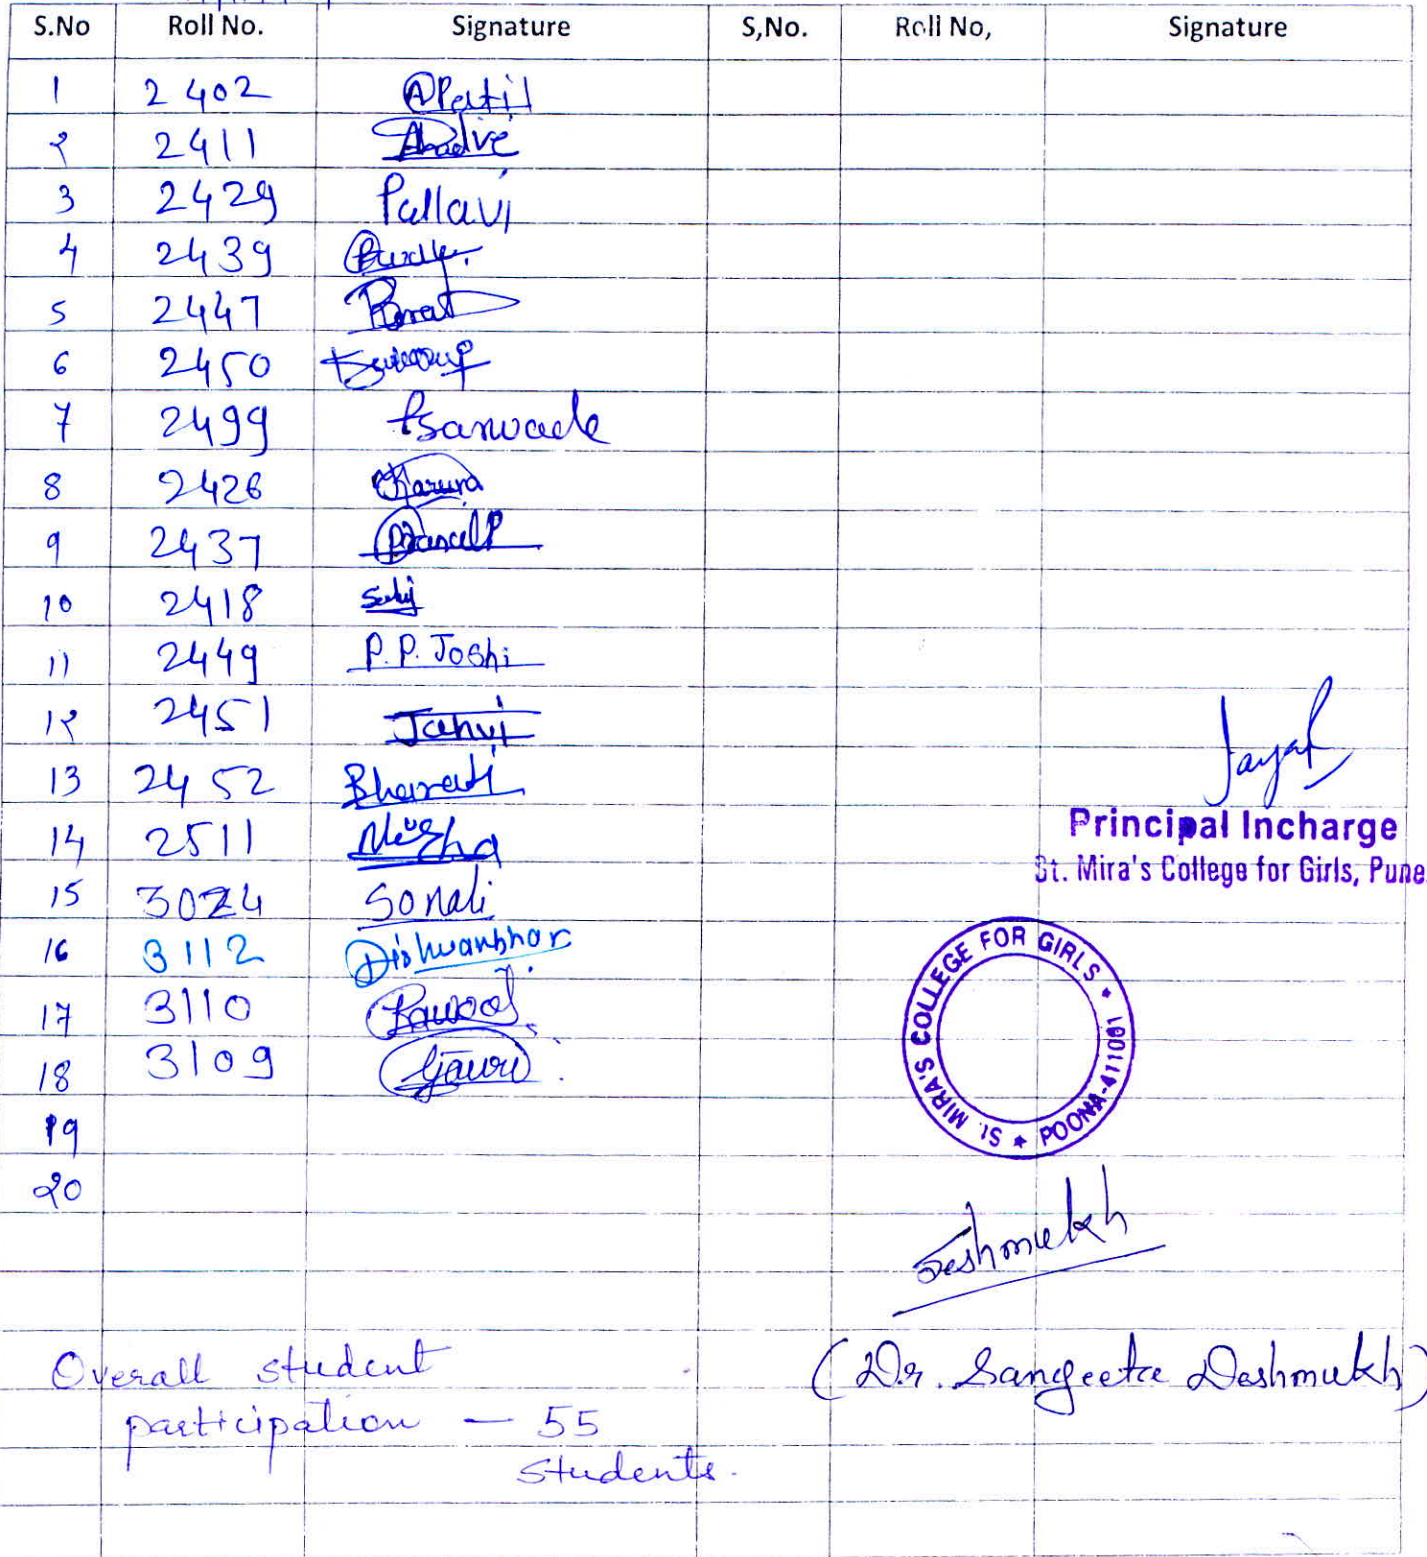 S.No Roll No. Signature S,No. Roll No, Signature
1 2402 APatil
२ 2411
3 2429 Pallavi
4 2439
5 2447
6 2450
7 2499 Psarwade
8 2426 Karuna
9 2437
10 2418
11 2449 P.P. Joshi
1२ 2451 Janvi
13 2452 Bharati
14 2511 Nisha
15 3024 Sonali
16 3112 Dishwanbhar
17 3110
18 3109 Gauri
19
20
Principal Incharge
St. Mira's College for Girls, Pune
ST. MIRA'S COLLEGE FOR GIRLS * POONA-411001 *
Deshmukh
(Dr. Sangeeta Deshmukh)
Overall student
participation — 55
students.